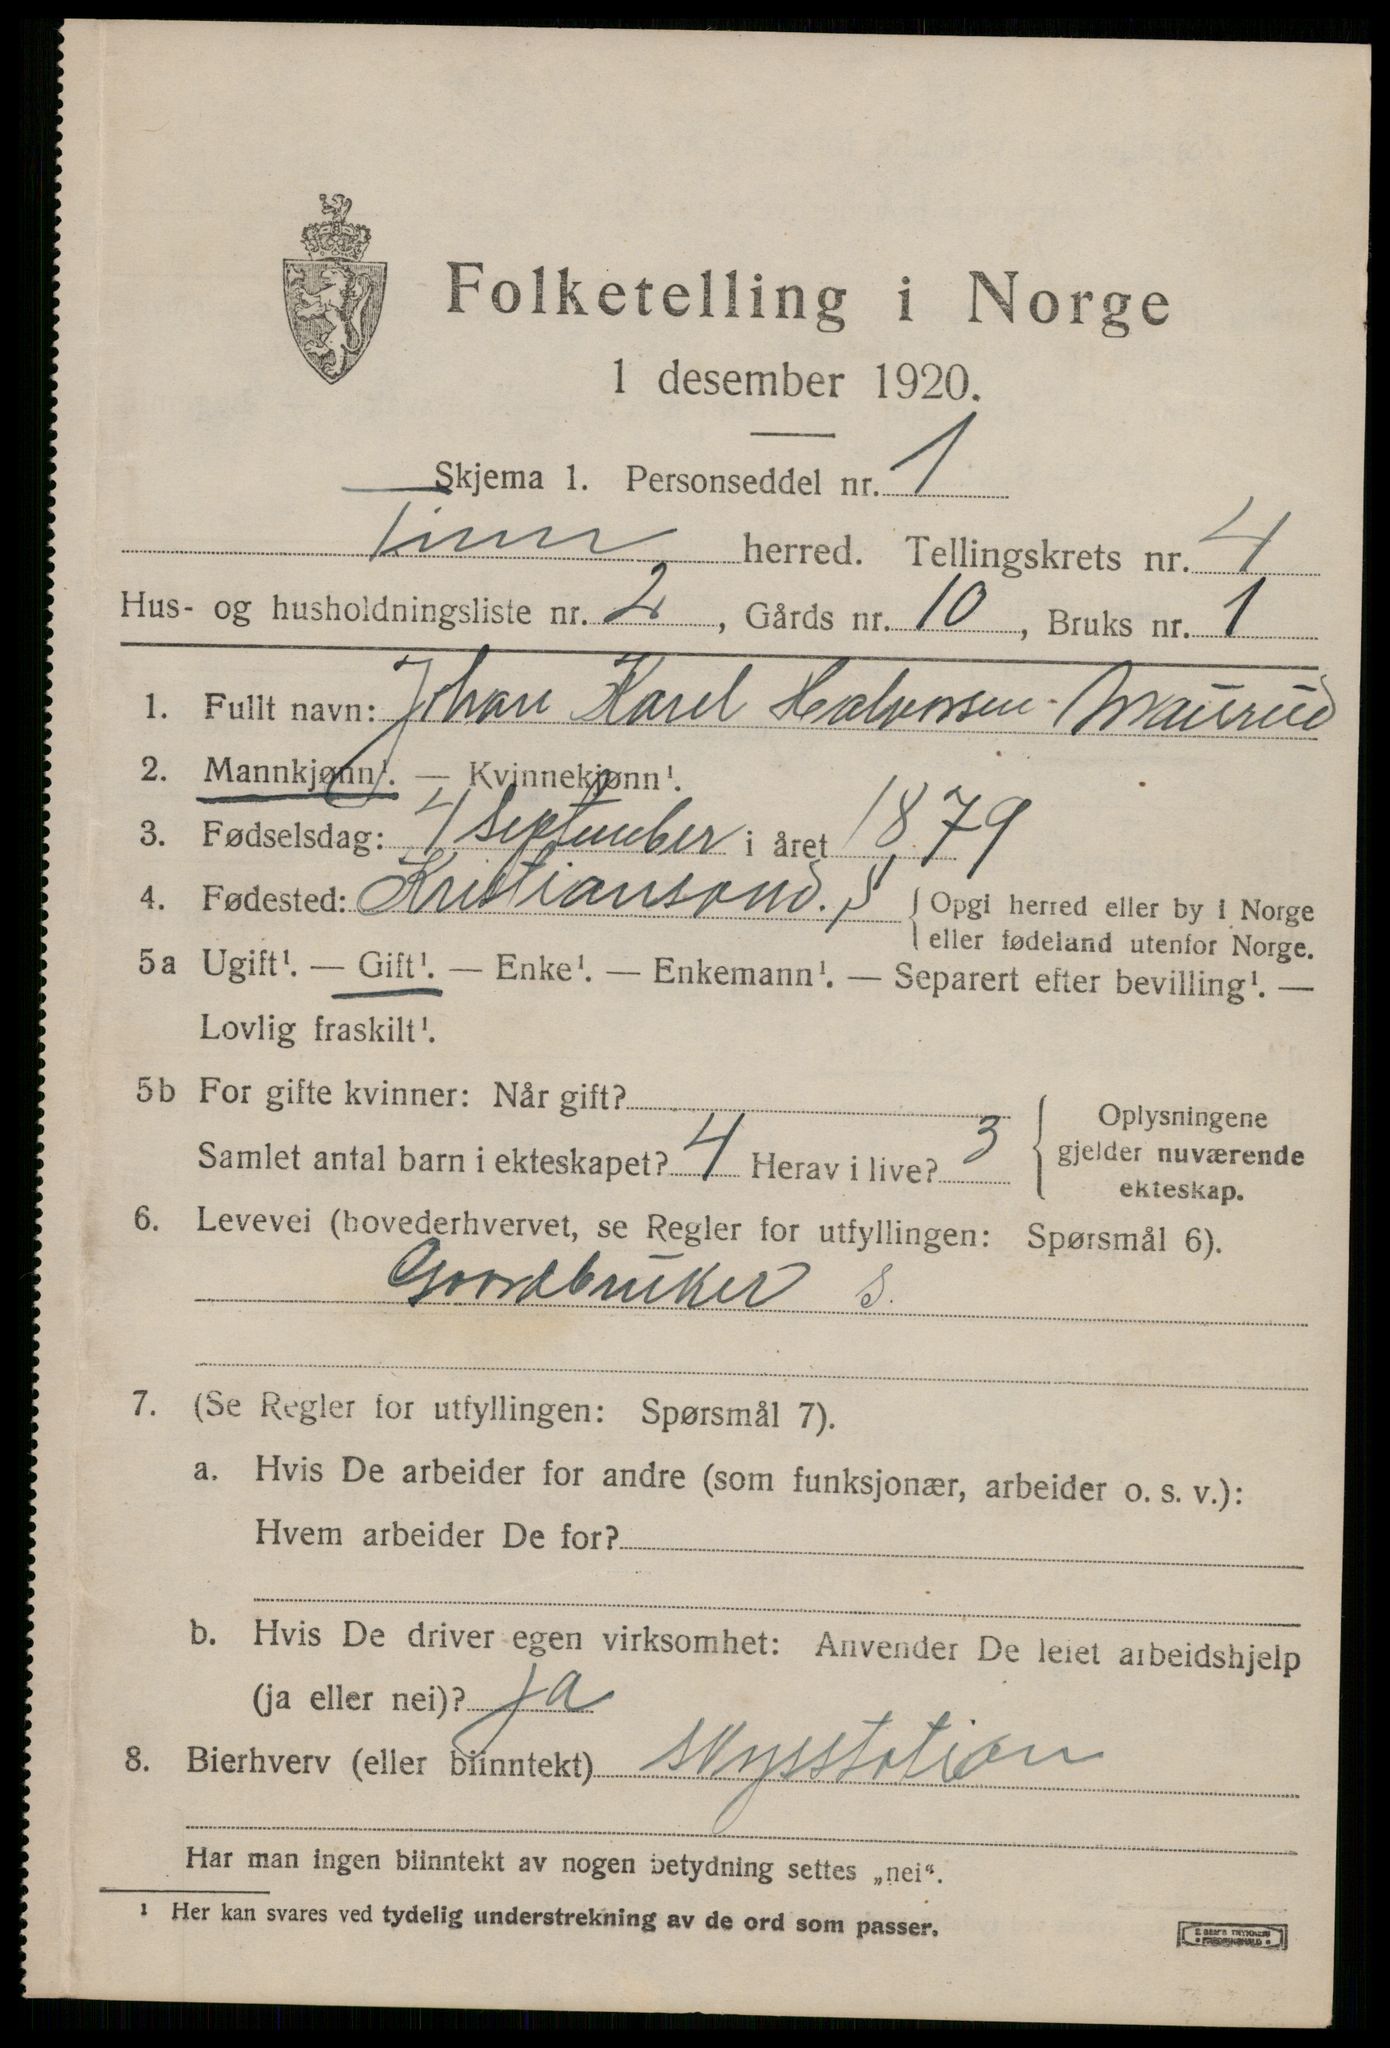 Folketelling i Norge
1 desember 1920.
Skjema 1. Personseddel nr. 1
Tinn herred. Tellingskrets nr. 4
Hus- og husholdningsliste nr. 2, Gårds nr. 10, Bruks nr. 1
1. Fullt navn: Johan Karel Halvorsen Maurud
2. Mannkjønn¹. — Kvinnekjønn¹.
3. Fødselsdag: 4 September i året 1879
4. Fødested: Kristiansand. S { Opgi herred eller by i Norge
eller fødeland utenfor Norge.
5a Ugift¹. — Gift¹. — Enke¹. — Enkemann¹. — Separert efter bevilling¹. —
Lovlig fraskilt¹.
5b For gifte kvinner: Når gift?
Samlet antal barn i ekteskapet? 4 Herav i live? 3
{ Oplysningene
gjelder nuværende
ekteskap.
6. Levevei (hovederhvervet, se Regler for utfyllingen: Spørsmål 6).
Goordbruker S.
7. (Se Regler for utfyllingen: Spørsmål 7).
a. Hvis De arbeider for andre (som funksjonær, arbeider o. s. v.):
Hvem arbeider De for?
b. Hvis De driver egen virksomhet: Anvender De leiet arbeidshjelp
(ja eller nei)? ja
8. Bierhverv (eller biinntekt) skysstation
Har man ingen biinntekt av nogen betydning settes „nei“.
¹ Her kan svares ved tydelig understrekning av de ord som passer.